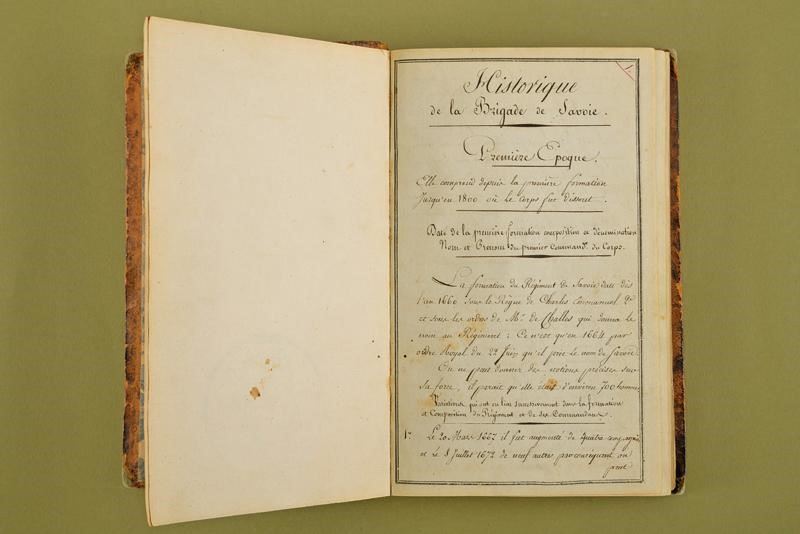 1
Historique
de la Brigade de Savoie.
Première Epoque.
Elle comprend depuis la première formation
Jusqu'en 1800 où le Corps fut dissout.
Date de la première formation composition et dénomination
Nom et Prénom du premier Command.t du Corps.
La formation du Régiment de Savoie date dès
l'an 1660 sous le Règne de Charles Emmanuel 2.d
et sous les ordres de Mr. de Challes qui donna le
nom au Régiment : Ce n'est qu'en 1664 par
ordre Royal du 22 Juin qu'il prit le nom de Savoie
On ne peut donner des notions précises sur
sa force, il parait qu'elle était d'environ 700 hommes
Variations qui ont eu lieu successivement dans la formation
et Composition du Régiment et de ses Commandans.
1.° Le 20 Mars 1667 il fut augmenté de quatre compagnies
et le 8 Juillet 1672 de neuf autres, par conséquent on
peut